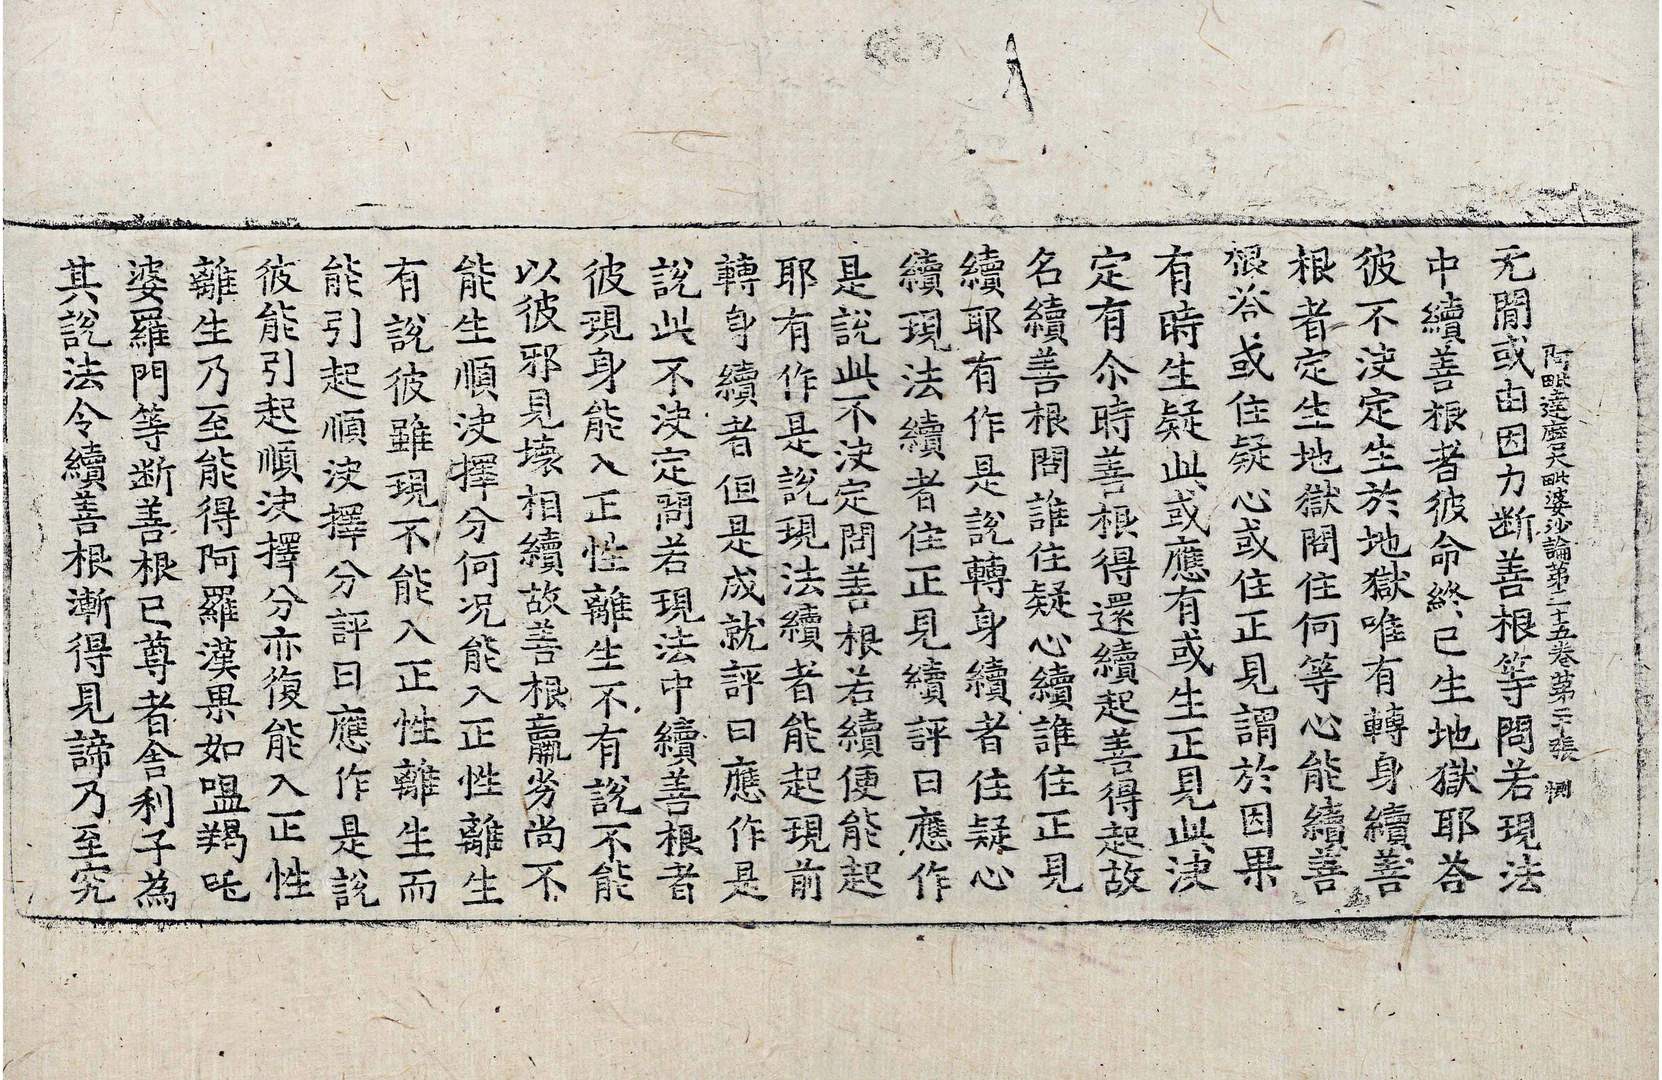 阿毗達磨大毗婆沙論第三十五卷 第二張 惻
无間或由因力断善根等問若現法
中續善根者彼命終已生地獄耶荅
彼不决定生於地獄唯有轉身續善
根者定生地獄問住何等心能續善
根荅或住疑心或住正見謂於因果
有時生疑此或應有或生正見此决
定有尒時善根得還續起善得起故
名續善根問誰住疑心續誰住正見
續耶有作是說轉身續者住疑心
續現法續者住正見續評曰應作
是說此不决定問善根若續便能起
耶有作是說現法續者能起現前
轉身續者但是成就評曰應作是
說此不决定問若現法中續善根者
彼現身能入正性離生不有說不能
以彼邪見壞相續故善根羸劣尚不
能生順决擇分何况能入正性離生
有說彼雖現不能入正性離生而
能引起順决擇分評曰應作是說
彼能引起順决擇分亦復能入正性
離生乃至能得阿羅漢果如嗢羯吒
婆羅門等断善根已尊者舍利子為
其說法令續善根漸得見諦乃至究